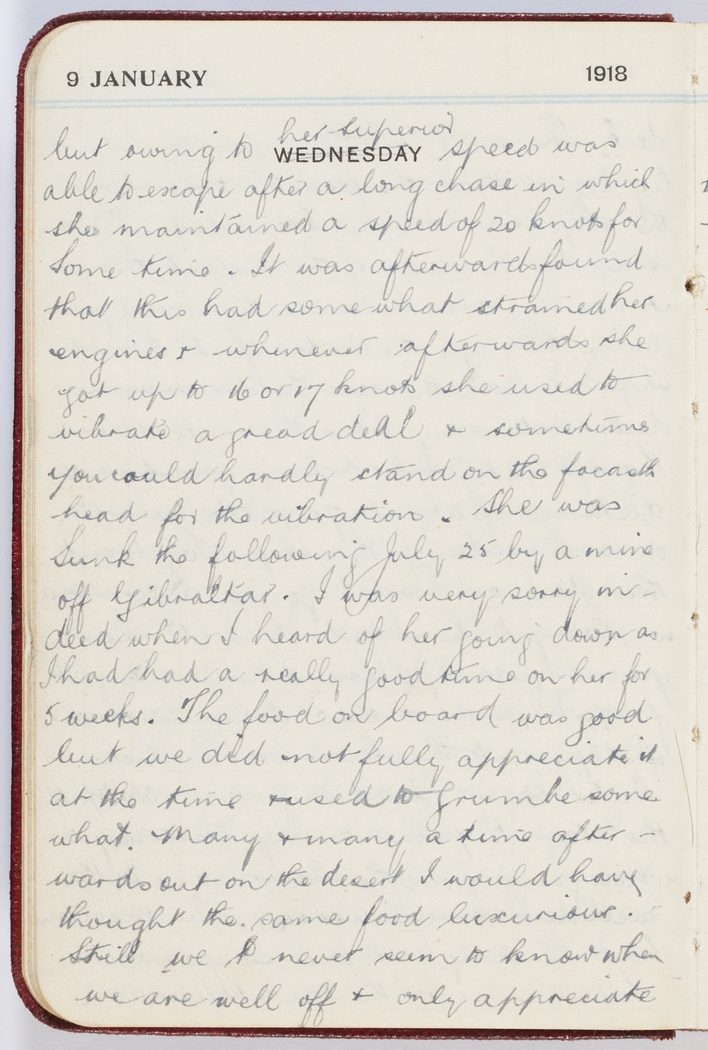 9 JANUARY 1918
WEDNESDAY
but owing to her superior speed was
able to escape after a long chase in which
she maintained a speed of 20 knots for
some time. It was afterwards found
that this had somewhat strained her
engines & whenever afterwards she
got up to 16 or 17 knots she used to
vibrate a gread deal & sometimes
you could hardly stand on the
head for the vibration. She was
sunk the following July 25 by a mine
off Gibraltar. I was very sorry in-
deed when I heard of her going down as
I had had a really good time on her for
5 weeks. The food on board was good
but we did not fully appreciate it
at the time & used to grumbe some
what. Many & many a time after-
wards out on the desert I would have
thought the same food luxurious.
Still we never seem to know when
we are well off & only appreciate